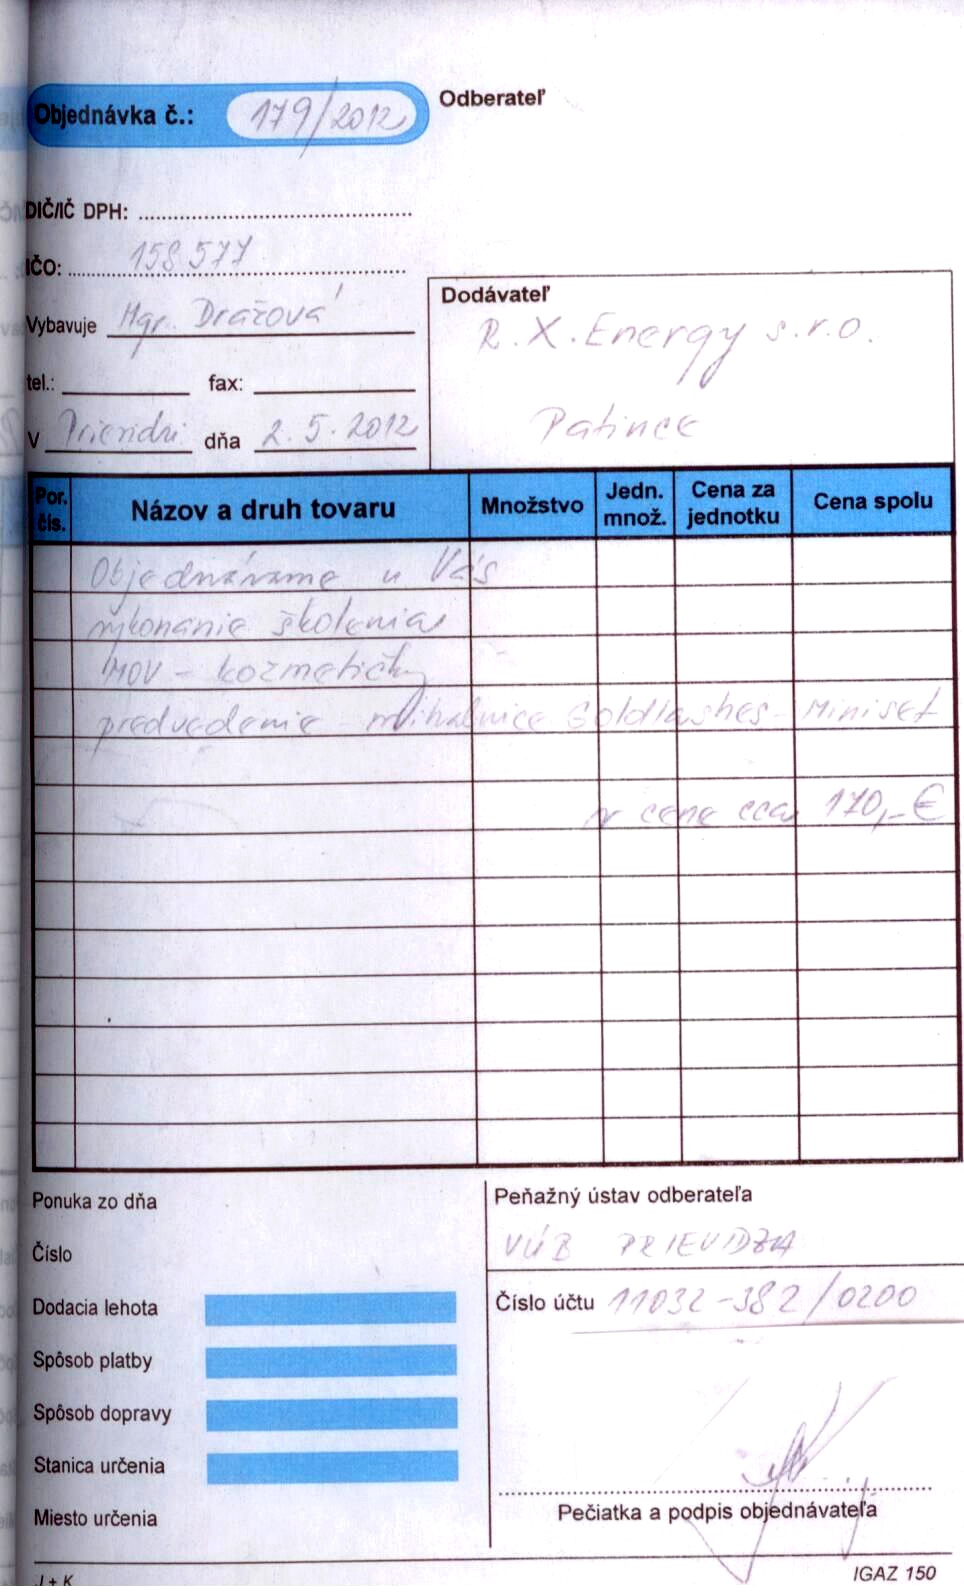 Objednávka č.: 179/2012
Odberateľ
DIČ/IČ DPH:
IČO: 158 577
Vybavuje Mgr. Dražová
tel.: fax:
V Prievidzi dňa 2. 5. 2012
Dodávateľ
R.X.Energy s.r.o.
Patince
Por. čís. Názov a druh tovaru Množstvo Jedn. množ. Cena za jednotku Cena spolu
Objednávame u Vás
vykonanie školenia
MOV - kozmetičky
predvedenie - mihalnice Goldlashes - Miniset
v cene cca 170,- €
Ponuka zo dňa
Číslo
Dodacia lehota
Spôsob platby
Spôsob dopravy
Stanica určenia
Miesto určenia
Peňažný ústav odberateľa
VÚB PRIEVIDZA
Číslo účtu 11032-382/0200
Pečiatka a podpis objednávateľa
J + K
IGAZ 150